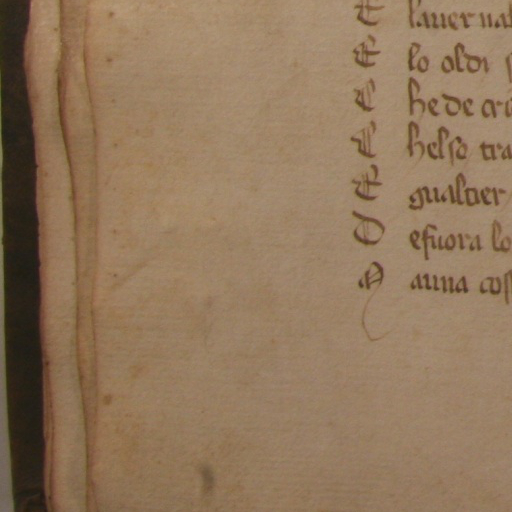 E lauer ual
E lo oldi s
C he de cri
C helso tra
E gualtier
D efuora lo
M anna cos